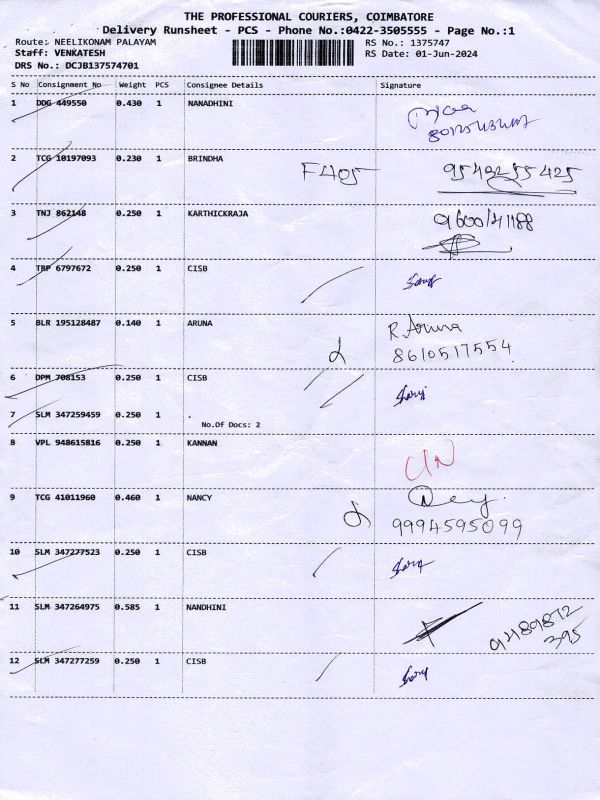 THE PROFESSIONAL COURIERS, COIMBATORE
Delivery Runsheet - PCS - Phone No.:0422-3505555 - Page No.:1
Route: NEELIKONAM PALAYAM
RS No.: 1375747
Staff: VENKATESH
RS Date: 01-Jun-2024
DRS No.: DCJB137574701
S No Consignment No Weight PCS Consignee Details Signature
1 DDG 449550 0.430 1 NANADHINI
2 TCG 10197093 0.230 1 BRINDHA F405 9543255425
3 TNJ 862148 0.250 1 KARTHICKRAJA 9600141188
4 TRP 6797672 0.250 1 CISB
5 BLR 195128487 0.140 1 ARUNA R. Aruna
8610517554
6 DPM 708153 0.250 1 CISB
7 SLM 347259459 0.250 1 .
No.Of Docs: 2
8 VPL 948615816 0.250 1 KANNAN
9 TCG 41011960 0.460 1 NANCY
9994595099
10 SLM 347277523 0.250 1 CISB
11 SLM 347264975 0.585 1 NANDHINI
12 SLM 347277259 0.250 1 CISB